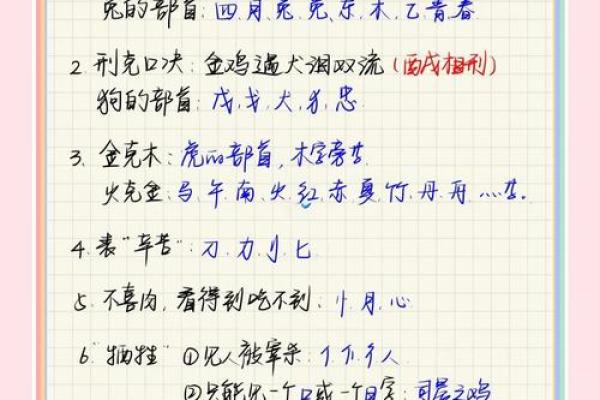 兔的部首：四.月.兔.兔.东.木.乙.青.春.
2. 刑克口决：金鸡遇犬泪双流（酉戌相刑）
狗的部首：戊.戈.犬.犭.忠.
3. 金克木：虎的部首，木字旁等
火克金：马.午.南.火.红.赤.夏.竹.丹.冉.灬等.
4. 表"辛苦"：刀.力.刂.匕
5. 不喜肉，看得到吃不到：忄.月.心
6 "牺牲" ①见人被宰杀：亻.个.彳.人
②只能见一个口或一个日字：司晨之鸡